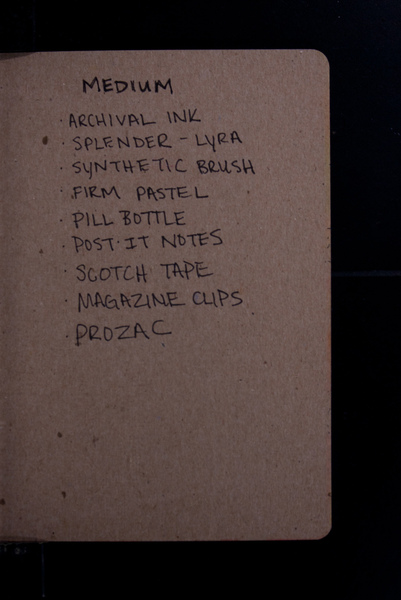 MEDIUM
· ARCHIVAL INK
· SPLENDER - LYRA
· SYNTHETIC BRUSH
· FIRM PASTEL
· PILL BOTTLE
· POST-IT NOTES
· SCOTCH TAPE
· MAGAZINE CLIPS
· PROZAC